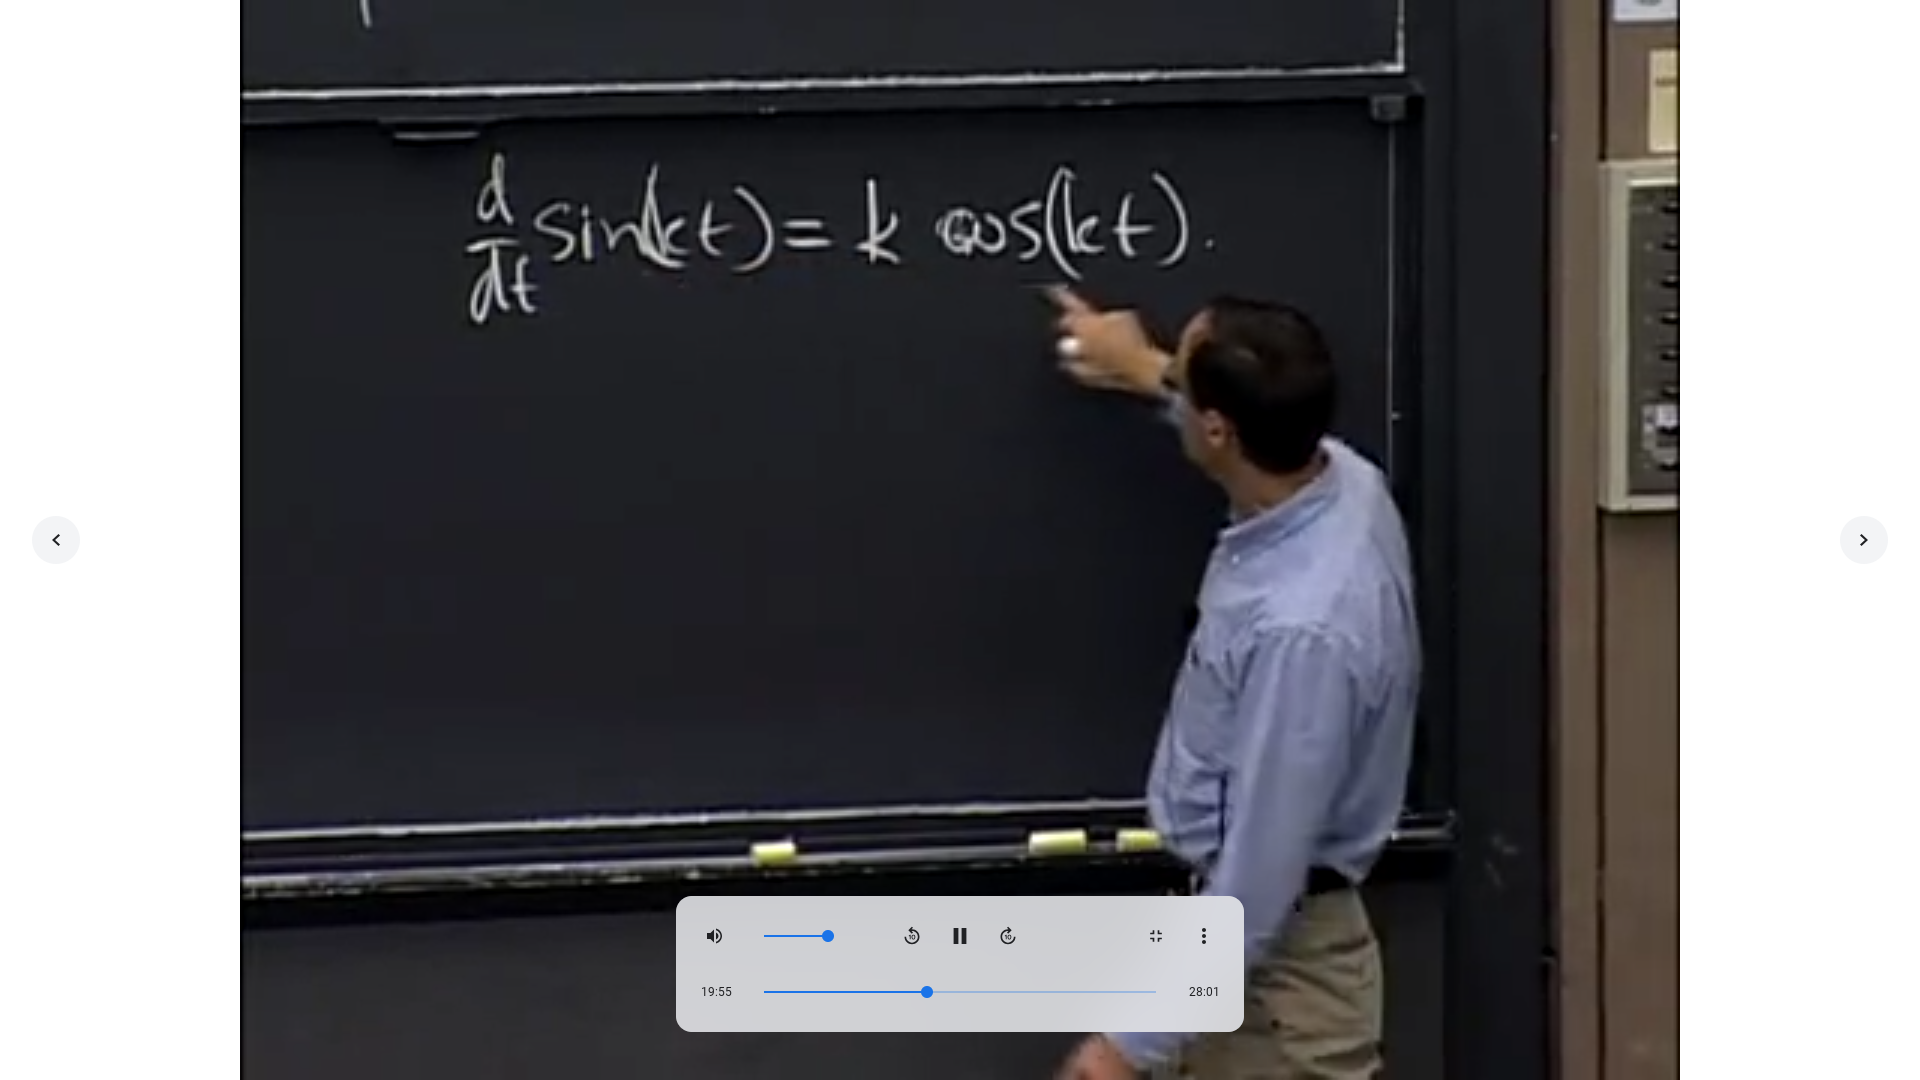 d/dt sin(kt) = k cos(kt).
19:55 28:01